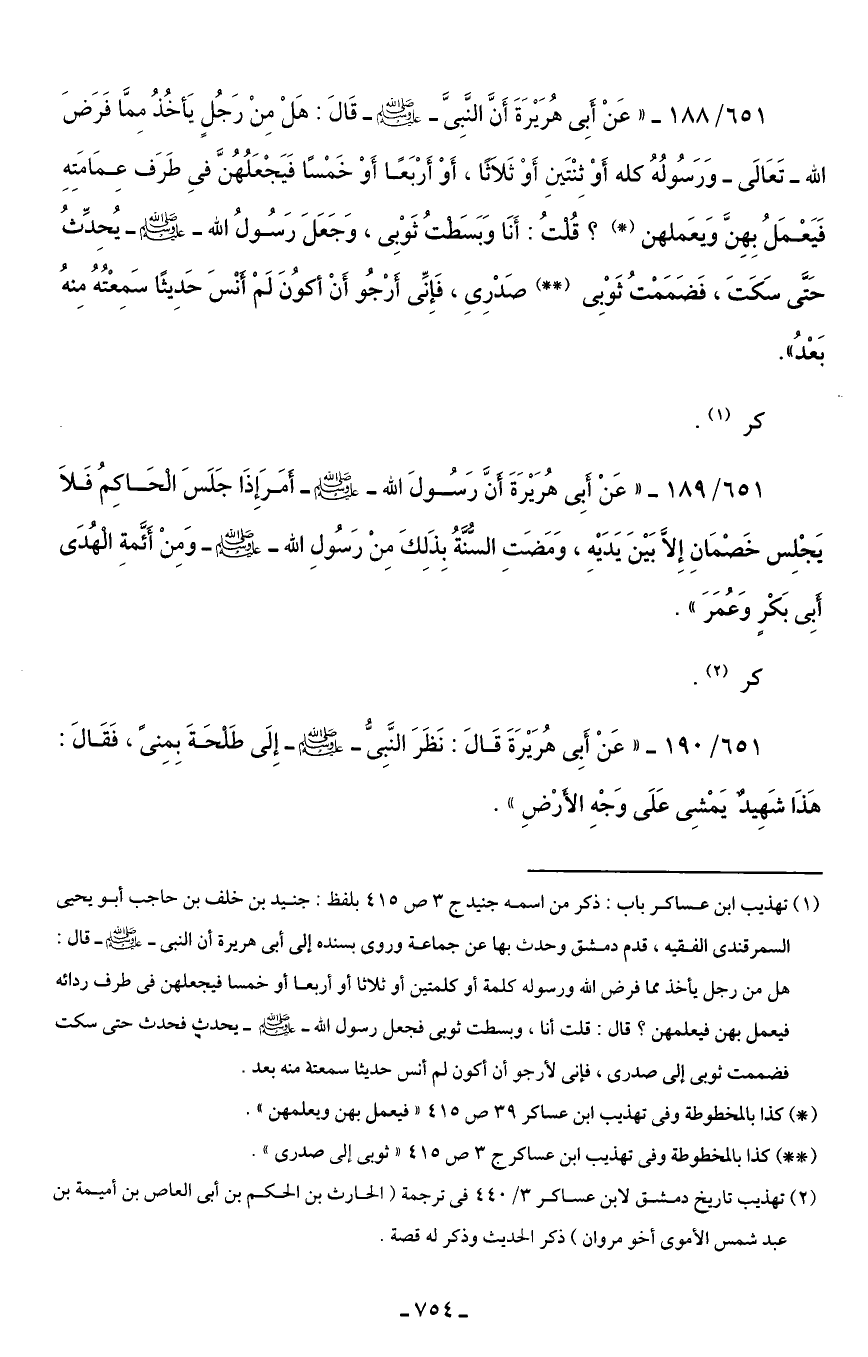 ٦٥١/ ١٨٨ ـ « عَنْ أَبِى هُرَيْرَةَ أَنَّ النَّبِىَّ ـ ﷺ ـ قَالَ : هَلْ مِنْ رَجُلٍ يَأخُذُ مِمَّا فَرَضَ
الله ـ تَعَالَى ـ وَرَسُولُهُ كله أَوْ ثِنْتَينِ أَوْ ثَلاَثًا ، أَوْ أَرْبَعًا أَوْ خَمْسًا فَيَجْعَلُهُنَّ فِى طَرَفِ عِمَامَتِهِ
فَيَعْمَلُ بِهِنَّ وَيَعَملهن (*) ؟ قُلْتُ : أَنَا وَبَسَطْتُ ثَوْبِى ، وَجَعَلَ رَسُولُ الله ـ ﷺ ـ يُحدِّثُ
حَتَّى سَكَتَ ، فَضَمَمْتُ ثَوْبِى (**) صَدْرِي ، فَإِنِّى أَرْجُو أَنْ أكونُ لَمْ أَنْسَ حَدِيثًا سَمِعْتُهُ مِنهُ
بَعْدُ».
كر (١) .
٦٥١/ ١٨٩ ـ « عَنْ أَبِى هُرَيْرَةَ أَنَّ رَسُولَ الله ـ ﷺ ـ أَمَرَ إِذَا جَلَسَ الْحَاكِمُ فَلاَ
يَجْلِس خَصْمَانِ إِلاَّ بَيْنَ يَدَيْهِ ، وَمَضَتِ السُّنَّةُ بِذَلِكَ مِنْ رَسُولِ الله ـ ﷺ ـ وَمِنْ أَئِمَّةِ الْهُدَى
أَبِى بَكْرٍ وَعُمَرَ » .
كر (٢) .
٦٥١/ ١٩٠ ـ « عَنْ أَبِى هُرَيْرَةَ قَالَ : نَظَرَ النَّبِىُّ ـ ﷺ ـ إِلَى طَلْحَةَ بِمِنىً ، فَقَالَ :
هَذَا شَهِيدٌ يَمْشِى عَلَى وَجْهِ الأَرْضِ » .
(١) تهذيب ابن عساكر باب : ذكر من اسمه جنيد ج ٣ ص ٤١٥ بلفظ : جنيد بن خلف بن حاجب أبو يحيى
السمرقندى الفقيه ، قدم دمشق وحدث بها عن جماعة وروى بسنده إلى أبى هريرة أن النبى ـ ﷺ ـ قال :
هل من رجل يأخذ مما فرض الله ورسوله كلمة أو كلمتين أو ثلاثا أو أربعا أو خمسا فيجعلهن فى طرف ردائه
فيعمل بهن فيعلمهن ؟ قال : قلت أنا ، وبسطت ثوبى فجعل رسول الله ـ ﷺ ـ يحدث فحدث حتى سكت
فضممت ثوبى إلى صدرى ، فإنى لأرجو أن أكون لم أنس حديثا سمعتة منه بعد .
(*) كذا بالمخطوطة وفى تهذيب ابن عساكر ٣٩ ص ٤١٥ « فيعمل بهن ويعلمهن » .
(**) كذا بالمخطوطة وفى تهذيب ابن عساكر ج ٣ ص ٤١٥ « ثوبى إلى صدرى » .
(٢) تهذيب تاريخ دمشق لابن عساكر ٣/ ٤٤٠ فى ترجمة ( الحارث بن الحكم بن أبى العاص بن أميمة بن
عبد شمس الأموى أخو مروان ) ذكر الحديث وذكر له قصة .
ـ ٧٥٤ ـ